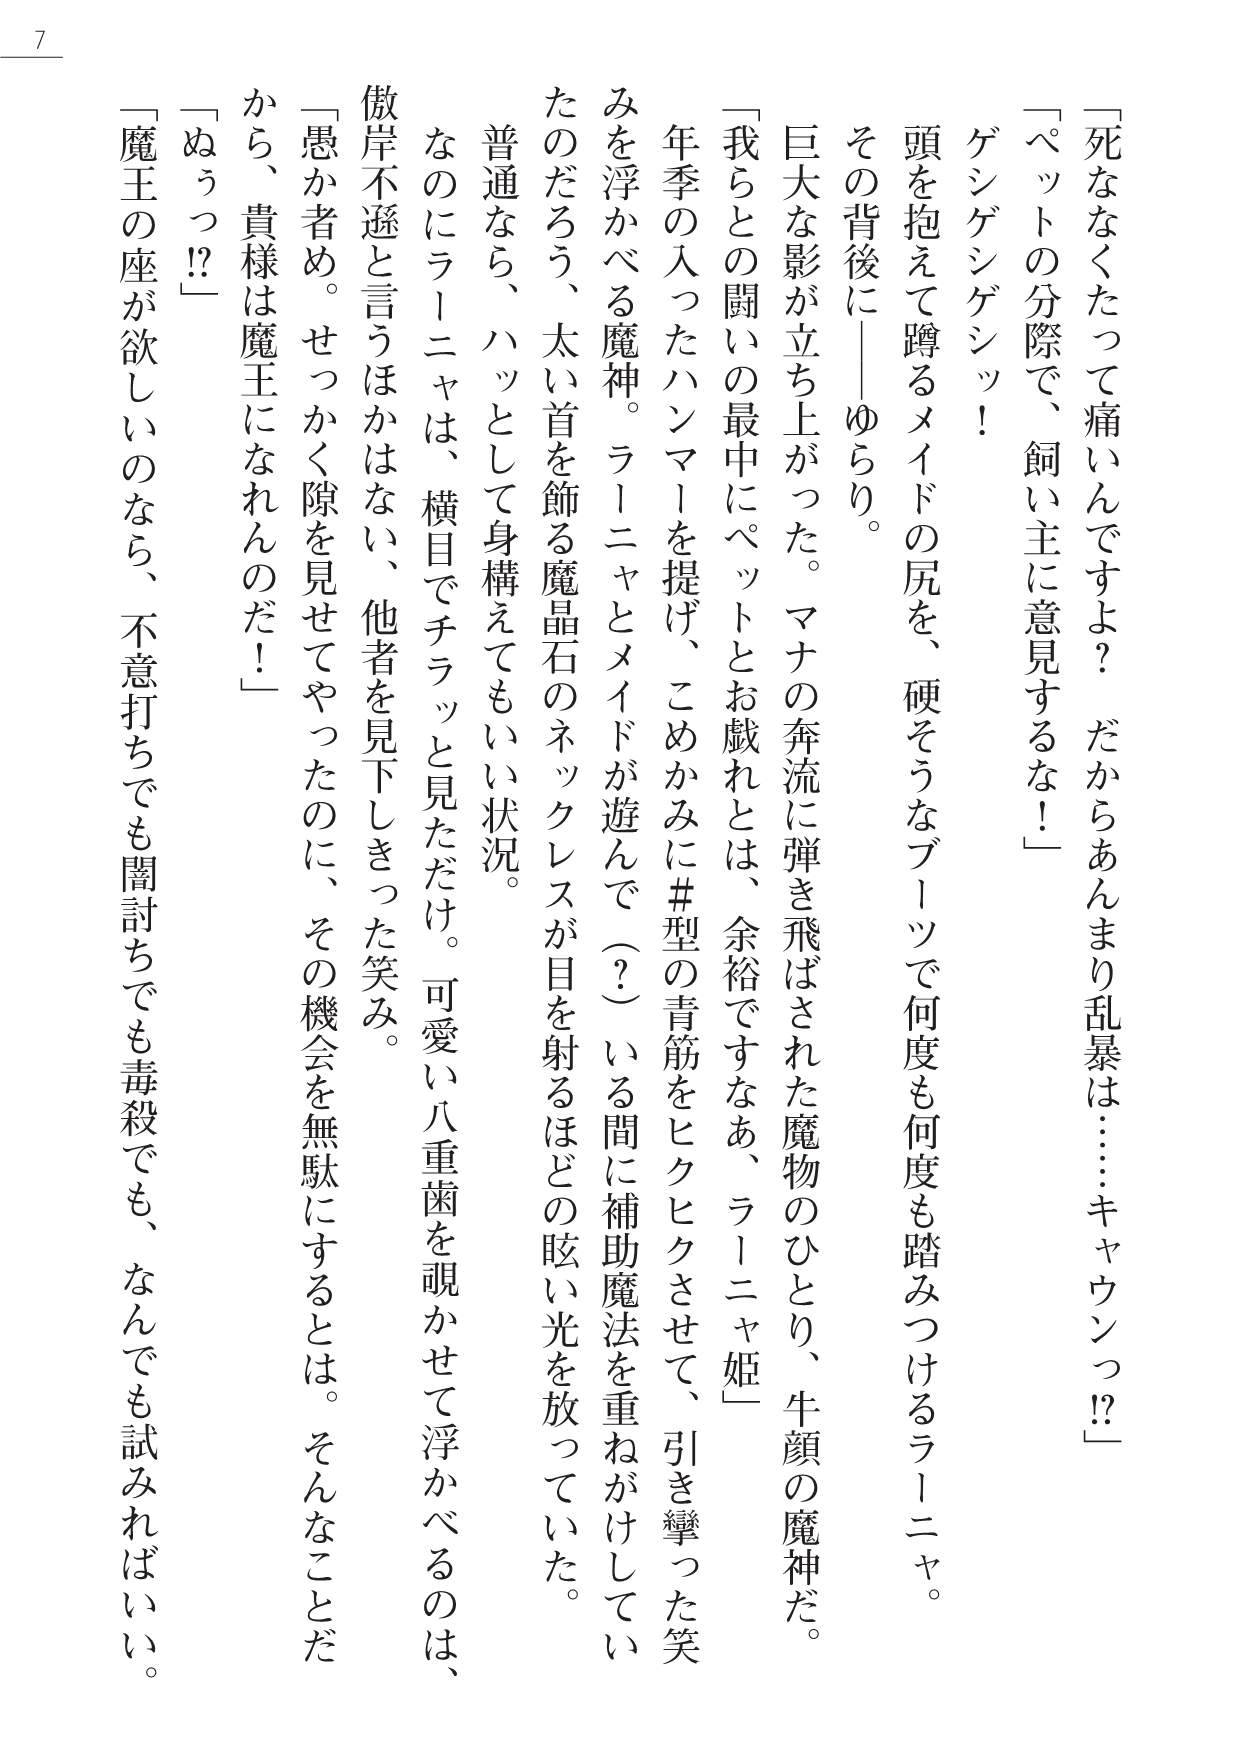 7
「死ななくたって痛いんですよ？　だからあんまり乱暴は……キャウンっ!?」
「ペットの分際で、飼い主に意見するな！」
　ゲシゲシゲシッ！
　頭を抱えて蹲るメイドの尻を、硬そうなブーツで何度も何度も踏みつけるラーニャ。
　その背後に――ゆらり。
　巨大な影が立ち上がった。マナの奔流に弾き飛ばされた魔物のひとり、牛顔の魔神だ。
「我らとの闘いの最中にペットとお戯れとは、余裕ですなあ、ラーニャ姫」
　年季の入ったハンマーを提げ、こめかみに＃型の青筋をヒクヒクさせて、引き攣った笑
みを浮かべる魔神。ラーニャとメイドが遊んで（？）いる間に補助魔法を重ねがけしてい
たのだろう、太い首を飾る魔晶石のネックレスが目を射るほどの眩い光を放っていた。
　普通なら、ハッとして身構えてもいい状況。
　なのにラーニャは、横目でチラッと見ただけ。可愛い八重歯を覗かせて浮かべるのは、
傲岸不遜と言うほかはない、他者を見下しきった笑み。
「愚か者め。せっかく隙を見せてやったのに、その機会を無駄にするとは。そんなことだ
から、貴様は魔王になれんのだ！」
「ぬぅっ!?」
「魔王の座が欲しいのなら、不意打ちでも闇討ちでも毒殺でも、なんでも試みればいい。